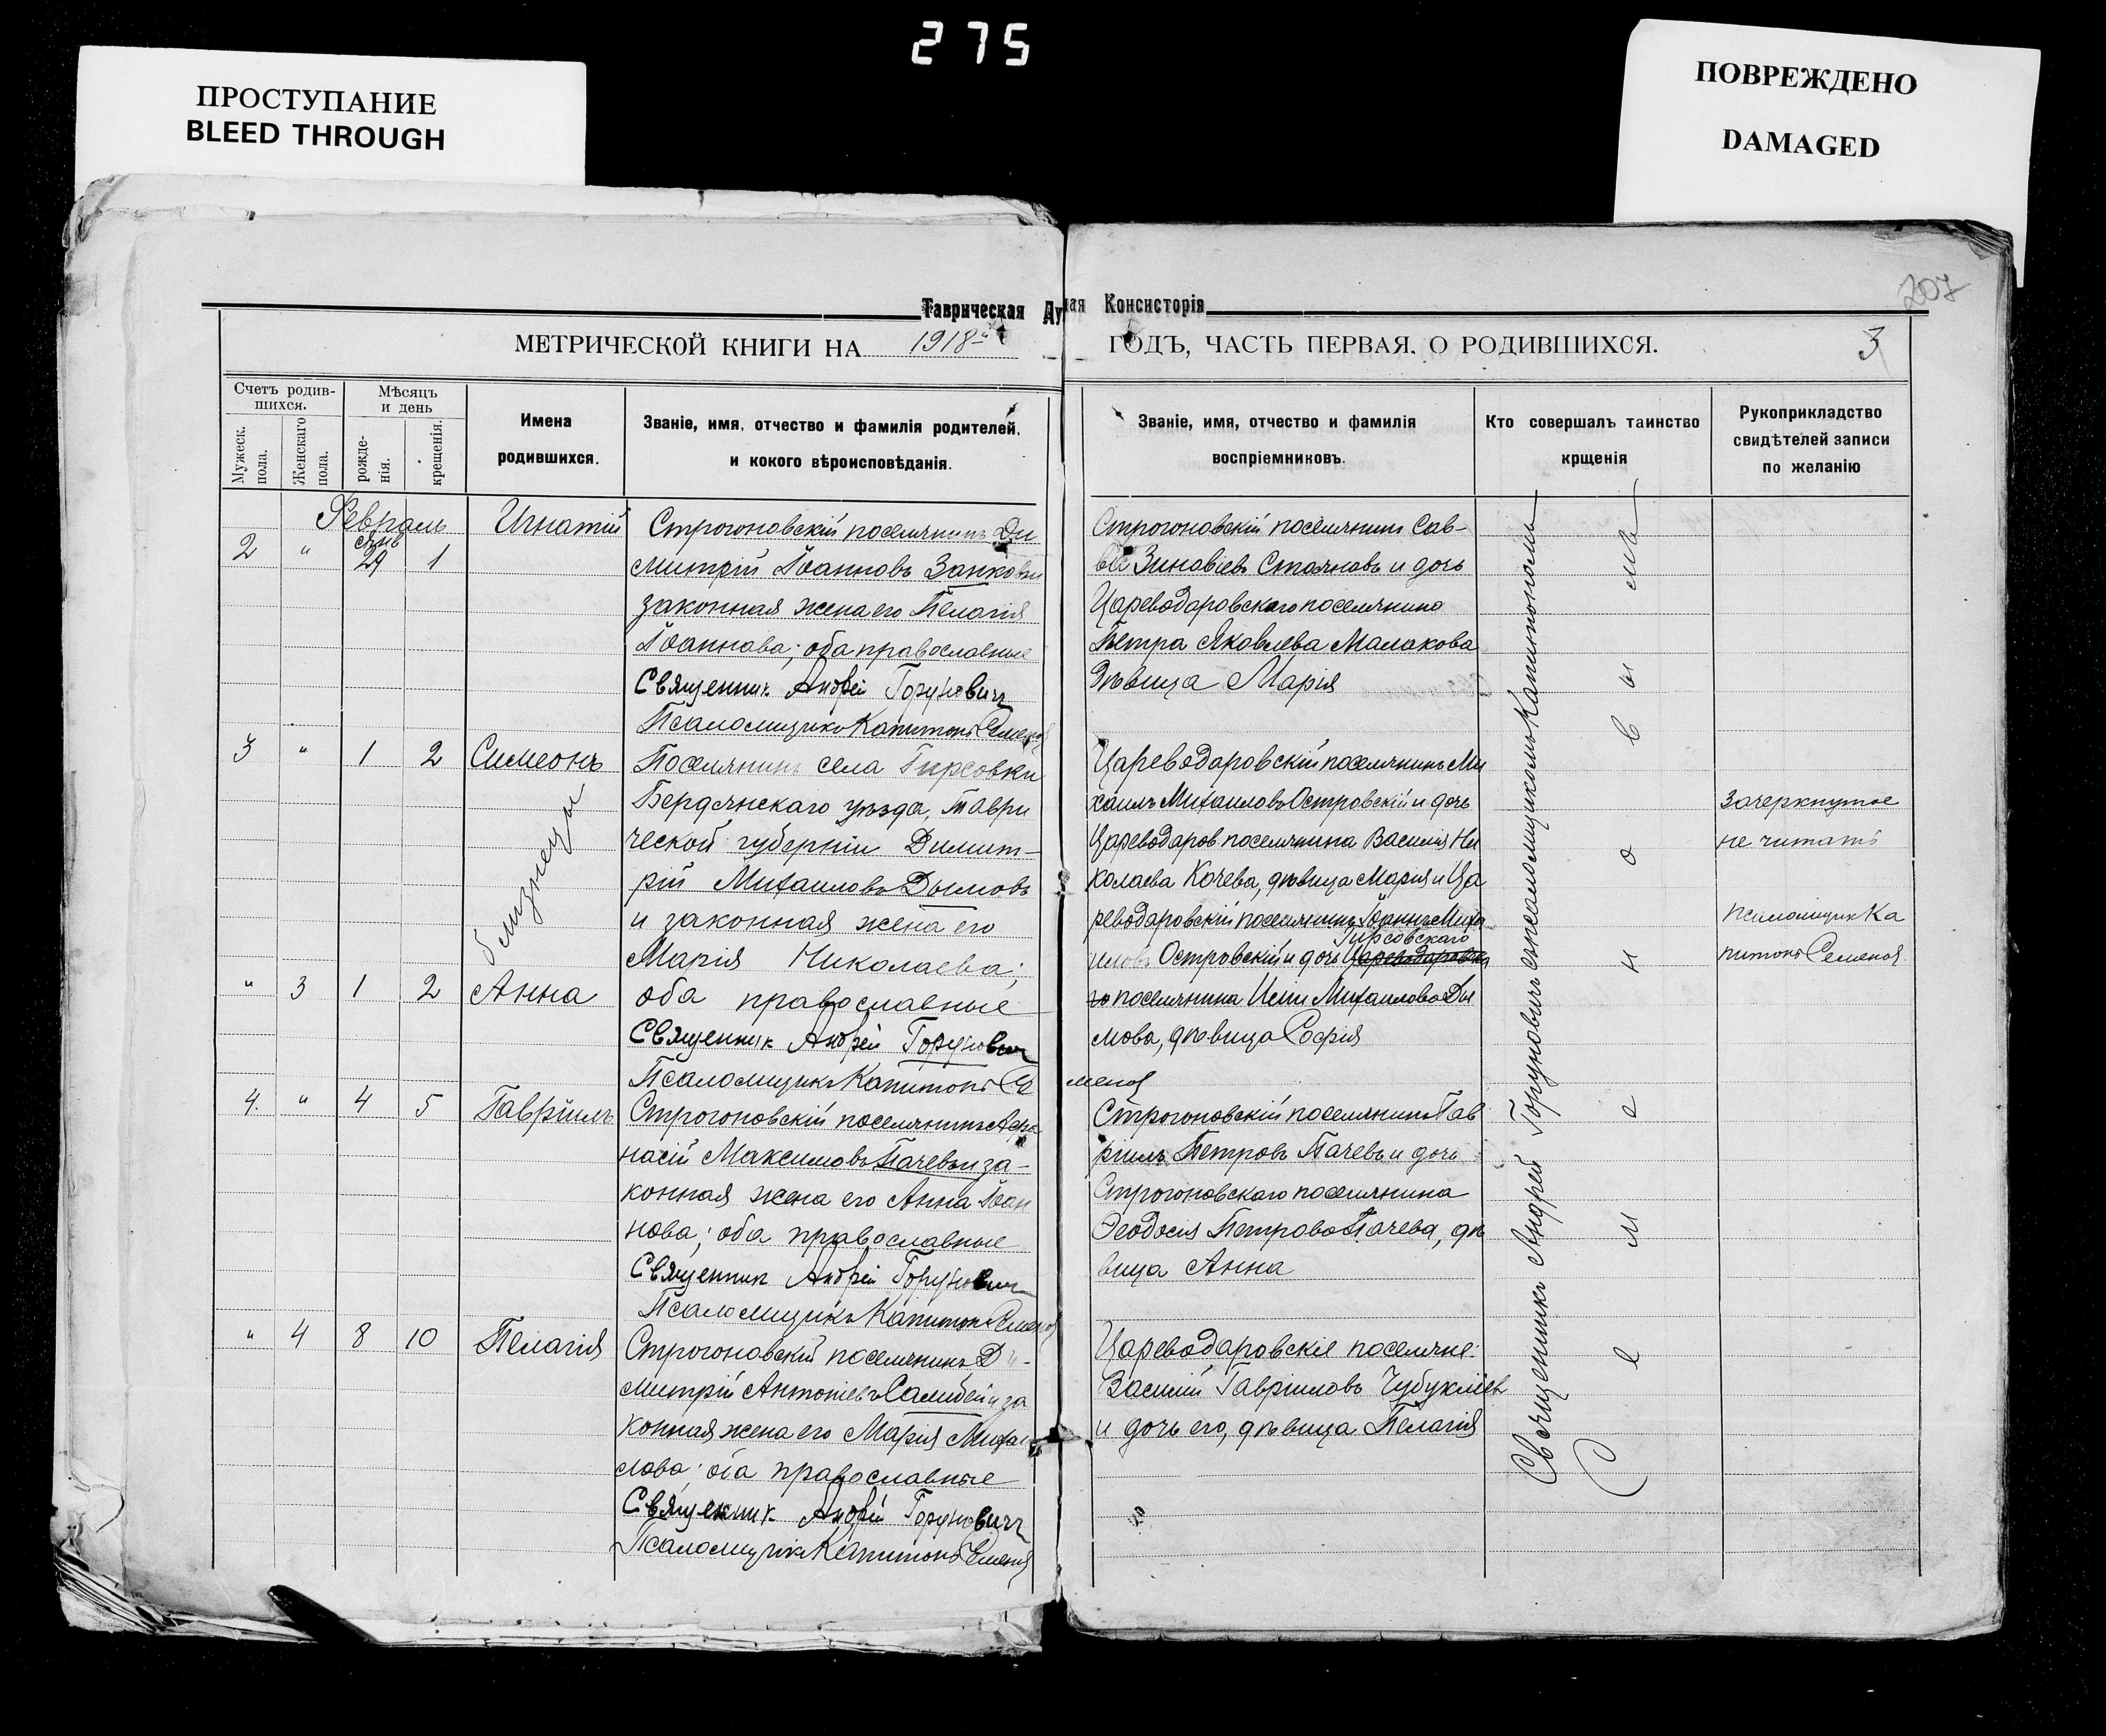 275
ПРОСТУПАНИЕ
BLEED THROUGH
ПОВРЕЖДЕНО
DAMAGED
207
Таврическая Ду ная Консисторія
МЕТРИЧЕСКОЙ КНИГИ НА 1918й
ГОДЪ, ЧАСТЬ ПЕРВАЯ, О РОДИВШИХСЯ.
3
Счетъ родив-
шихся.
Мужеск.
пола.
Женскаго
пола.
Мѣсяцъ
и день
рожде-
нія.
крещенія.
Имена
родившихся.
Званіе, имя, отчество и фамилія родителей,
и кокого вѣроисповѣданія.
Званіе, имя, отчество и фамилія
воспріемниковъ.
Кто совершалъ таинство
крщенія
Рукоприкладство
свидѣтелей записи
по желанію
Февраль
янв
2 " 29 1 Игнатій
Строгоновскій поселянинъ Ди
митрій Іоанновъ и
законная жена его Пелагія
Іоаннова; оба православные
Священникъ Андрей Горунович
Псаломщикъ Капитонъ Семенов
Строгоновскій поселянинъ Сав-
ва Зиновіевъ Стояновъ и дочь
Цареводаровскаго поселянина
Петра Яковлева Малакова
дѣвица Марія
3 " 1 2 Симеонъ
близнецы
Поселянинъ села Гирсовки
Бердянскаго уѣзда, Таври
ческой губерніи Димит-
рій Михаиловъ Дымовъ
и законная жена его
Марія Николаева;
" 3 1 2 Анна
оба православные
Священник Андрей Горунович
Псаломщикъ Капитонъ Се
менов
Цареводаровскій поселянинъ Ми
хаилъ Михаиловъ Островскій и дочь
Цареводаров поселянина Василія Ни
колаева Кочева, дѣвица Марія и Ца
реводаровскій поселянинъ Іоаннъ Миха
Гирсовскаго
иловъ Островскій и дочь Цареводаровска
го поселянина Иліи Михаилова Ды
мова, дѣвица Софія
Зачеркнутое
не читать
псаломщик Ка
питонъ Семенов
4. " 4 5 Гавріилъ
Строгоновскій поселянинъ Афа
насій Максимовъ Пачевъ и за-
конная жена его Анна Іоан
нова; оба православные
Священник Андрей Горунович
Псаломщикъ Капитонъ Семенов
Строгоновскій поселянинъ Гав
ріилъ Петровъ Пачевъ и дочь
Строгоновскаго поселянина
Ѳеодосія Петрова Пачева, дѣ
вица Анна
" 4 8 10 Пелагія
Строгоновскій поселянинъ Ди-
митрій Антоніевъ Салибей и за
конная жена его Марія Михаи
лова; оба православные
Священник Андрей Горунович
Псаломщикъ Капитонъ Семенов
Цареводаровскіе поселяне:
Василій Гавріиловъ Чубукліев
и дочь его, дѣвица Пелагія
Священникъ Андрей Горуновичъ съ псаломщикомъ Капитономъ
Семеновымъ